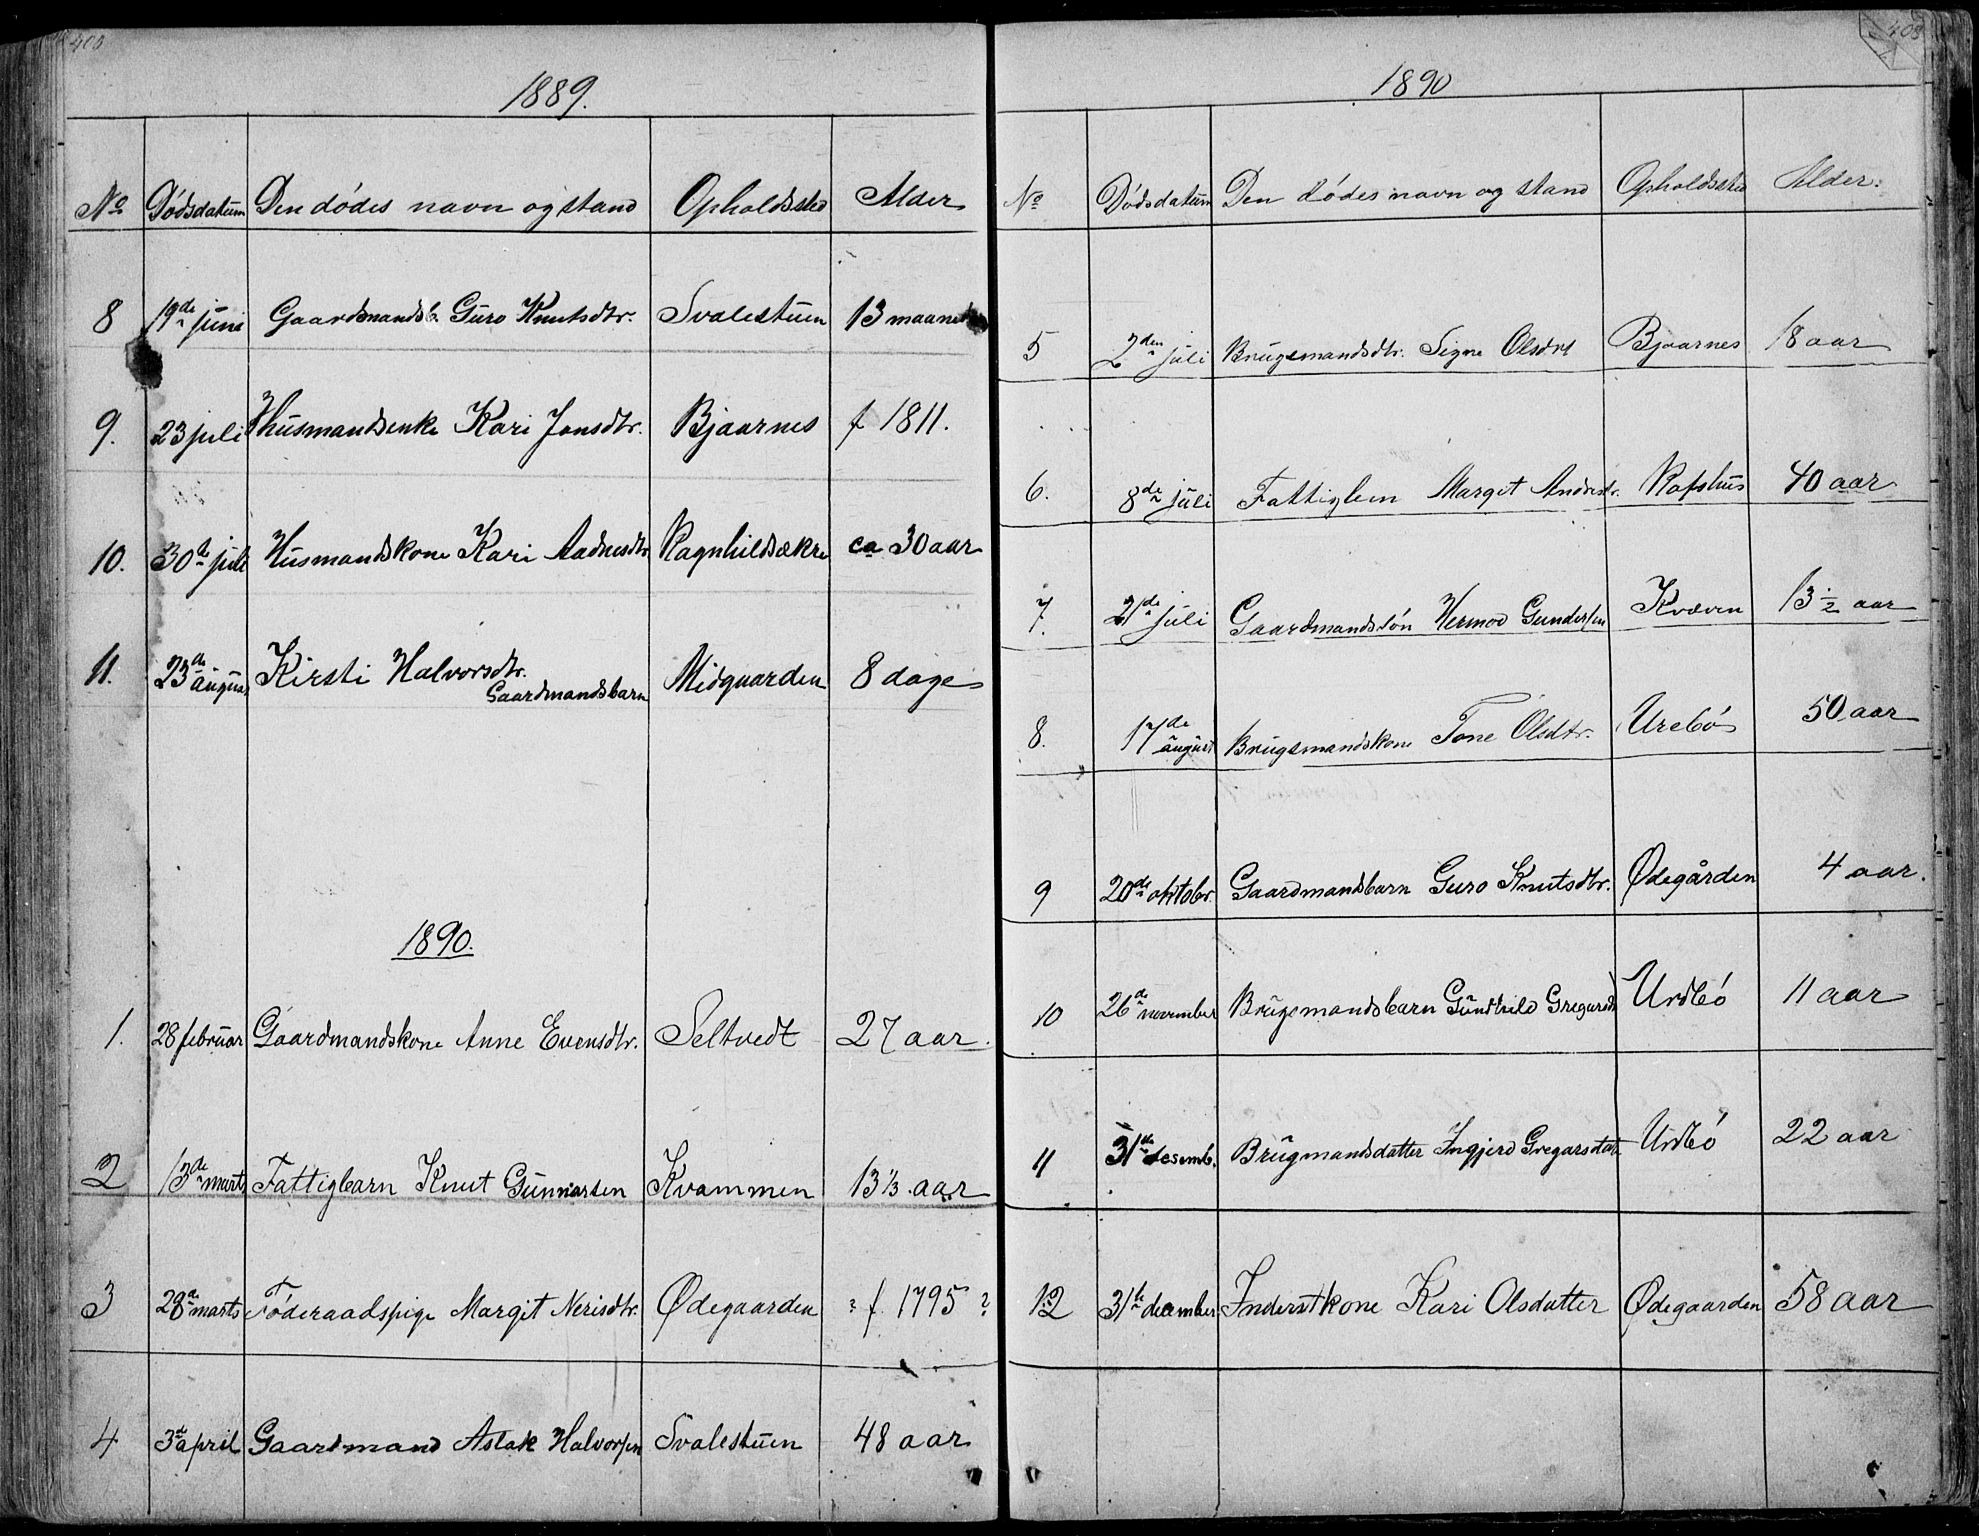 1889.
No Dödsdatum Den dödes navn og stand Opholdssted Alder
8 19de juni Gaardmandsb. Guro Knutsdtr. Svalestuen 13 maaneder
9. 23 juli Husmandsenke Kari Jonsdtr. Bjaarnes f 1811.
10. 30te juli Husmandskone Kari Aadnesdtr. Ragnhildsækre ca 30 aar
11. 23de august Kirsti Halvorsdtr. Midgaarden 8 dage
Gaardmandsbarn
1890.
1. 28 februar Gaardmandskone Anne Evensdtr. Seltvedt 27 aar.
2 13de marts Fattigbarn Knut Gunnarsen Kvammen 13 1/3 aar
3 28de marts Föderaadspige Margit Nerisdtr. Ødegaarden ? f. 1795 ?
4 3de april Gaardmand Aslak Halvorsen Svalestuen 48 aar
408
1890
No Dödsdatum Den dödes navn og stand Opholdssted Alder.
5 2den juli Brugsmandsdtr. Signe Olsdrt Bjaarnes 18 aar
6. 8de juli Fattiglem Margit Andrsdtr. Rafshus 40 aar
7. 21de juli Gaardmandssön Hermod Gundersen Kvæven 13 1/2 aar
8. 17de august Brugsmandskone Tone Olsdtr. Urebö 50 aar
9 20de oktobr. Gaardmandsbarn Guro Knutsdtr. Ødegården 4 aar.
10 26de november Brugsmandsbarn Gundhild Gregarsdt Urdbö 11 aar
11 31te desemb. Brugmandsdatter Ingjerd Gregarsdatr Urdbö 22 aar
12 31te december Inderstkone Kari Olsdatter Ødegaarden 58 aar